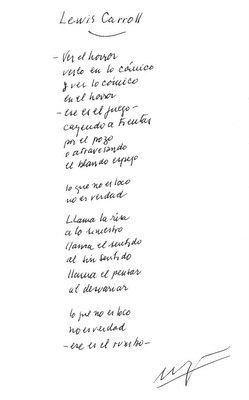 Lewis Carroll
- Ver el horror
verlo en lo cómico
y ver lo cómico
en el horror
- ese es el juego -
cayendo a tientas
por el pozo
o atravesando
el blando espejo
lo que no es loco
no es verdad
Llama la risa
a lo siniestro
llama el sentido
al sin sentido
llama el pensar
al desvariar
lo que no es loco
no es verdad
- ese es el rumbo -